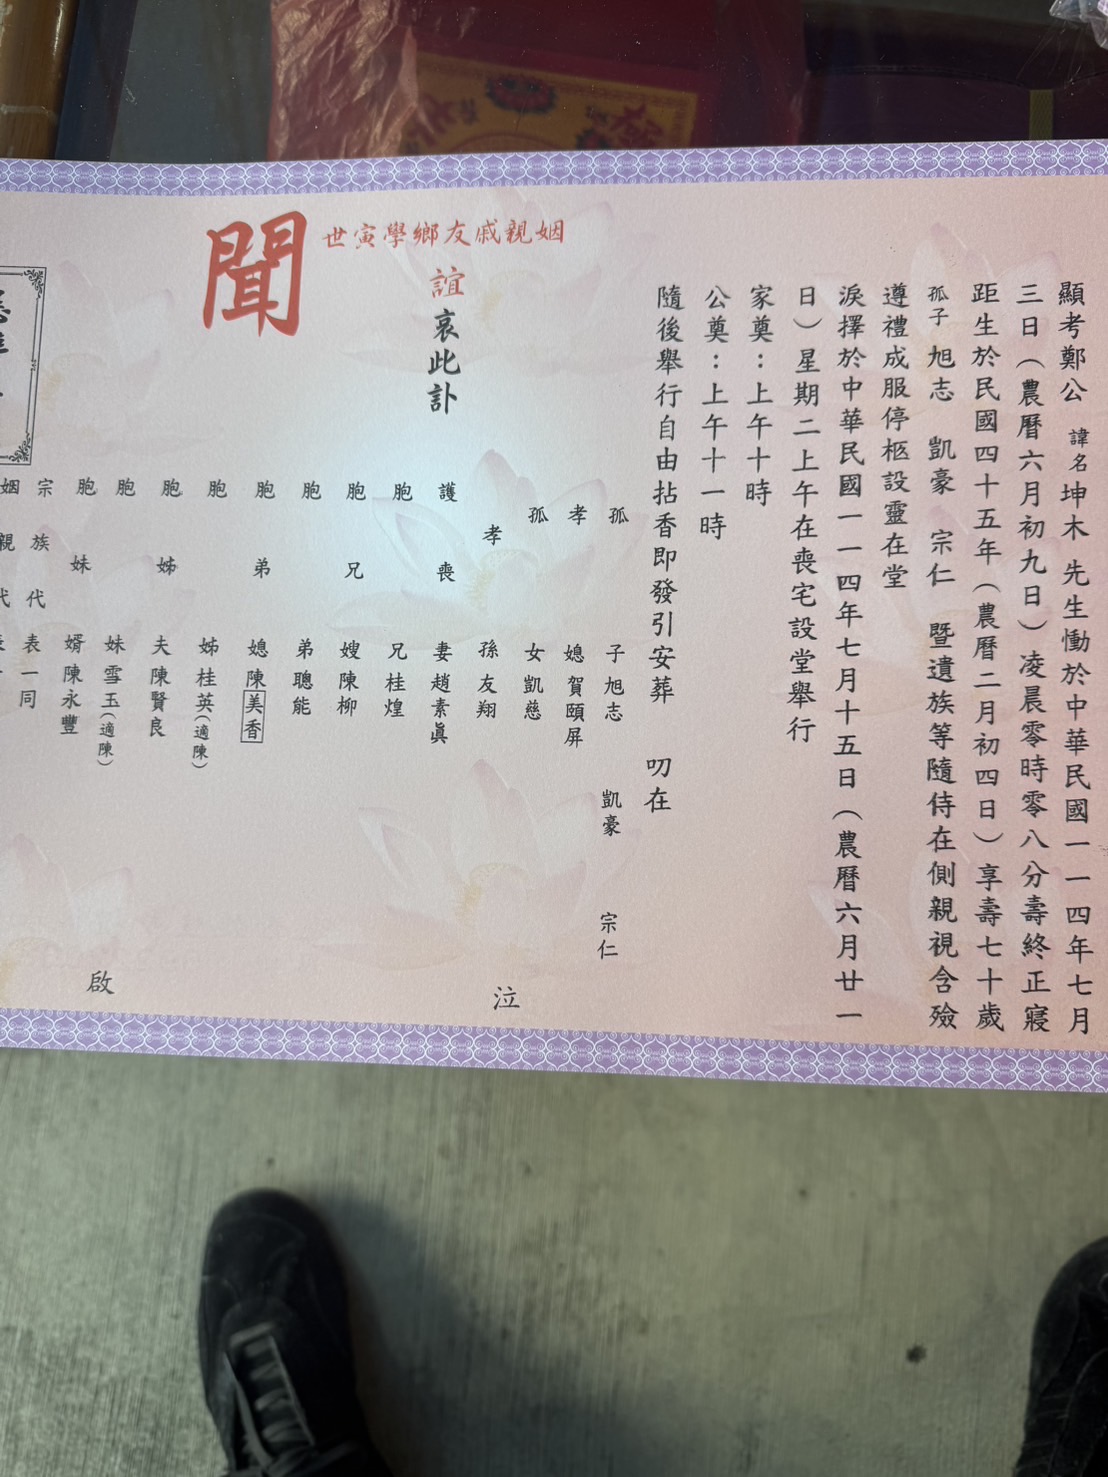 顯考鄭公 諱名坤木 先生慟於中華民國一一四年七月
三日（農曆六月初九日）凌晨零時零八分壽終正寢
距生於民國四十五年（農曆二月初四日）享壽七十歲
孤子 旭志 凱豪 宗仁 暨遺族等隨侍在側親視含殮
遵禮成服停柩設靈在堂
淚擇於中華民國一一四年七月十五日（農曆六月廿一
日）星期二上午在喪宅設堂舉行
家奠：上午十時
公奠：上午十一時
隨後舉行自由拈香即發引安葬 叨在
姻親戚友鄉學寅世
誼哀此訃
聞
孤子旭志 凱豪 宗仁
孝媳賀頤屏
孤女凱慈
孝孫友翔
護喪妻趙素眞
胞兄桂煌
胞兄嫂陳柳
胞弟聰能
胞弟媳陳美香
胞姊桂英（適陳）
胞姊夫陳賢良
胞妹雪玉（適陳）
胞妹婿陳永豐
宗族代表一同
姻親代
泣
啟